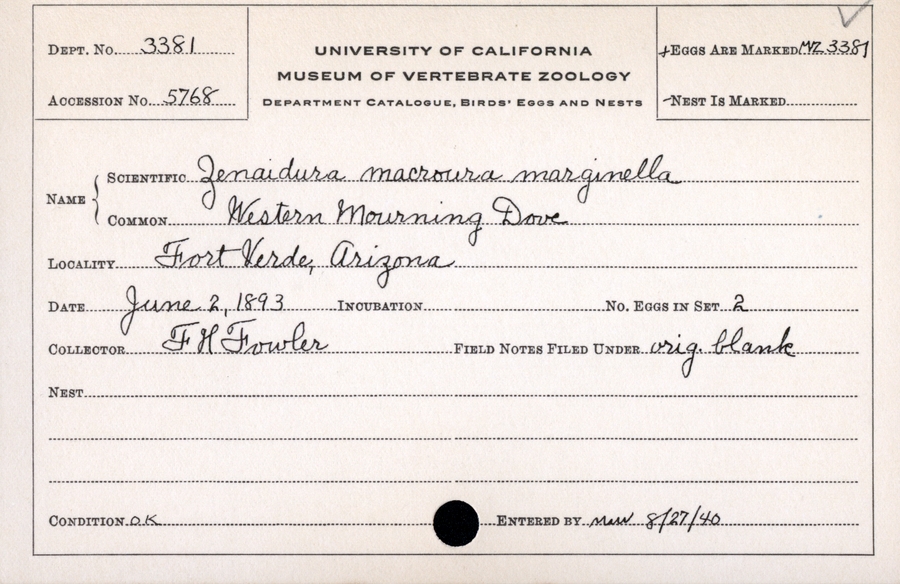 DEPT. No. 3381
UNIVERSITY OF CALIFORNIA
+EGGS ARE MARKED MVZ 3381
MUSEUM OF VERTEBRATE ZOOLOGY
ACCESSION No. 5768
DEPARTMENT CATALOGUE, BIRDS' EGGS AND NESTS
-NEST IS MARKED
NAME
SCIENTIFIC Zenaidura macroura marginella
COMMON Western Mourning Dove
LOCALITY Fort Verde, Arizona
DATE June 2, 1893 INCUBATION No. EGGS IN SET 2
COLLECTOR F H Fowler FIELD NOTES FILED UNDER orig. blank
NEST
CONDITION OK ENTERED BY 8/27/40